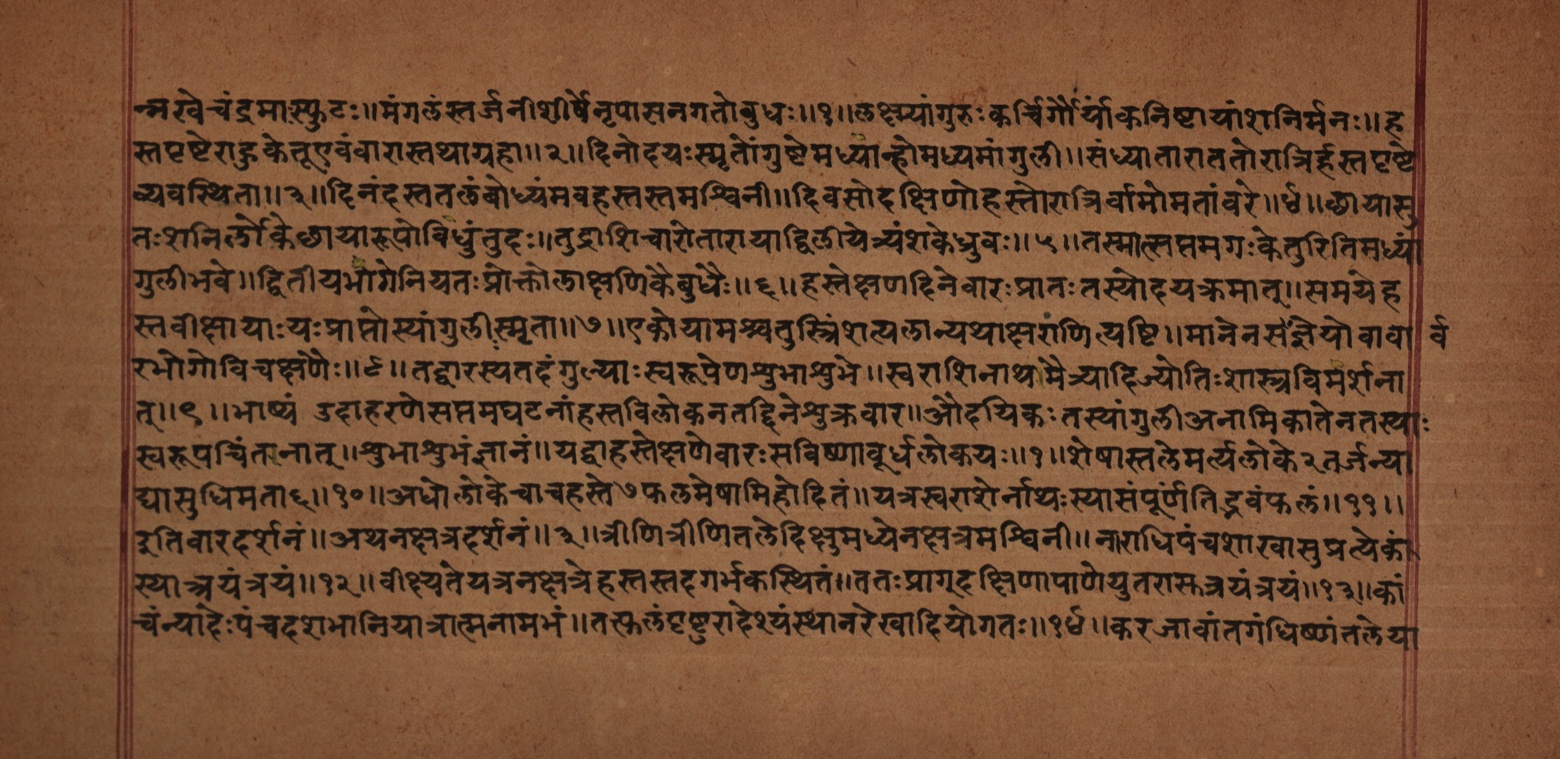 न्नखेचंद्रमास्फुटः॥मंगलंस्तर्जनीशीर्षेनृपासनगतोबुधः॥१॥लक्ष्म्यांगुरुःकर्चिर्गौर्यांकनिष्टायांशनिर्मनः॥ह
स्तपृष्टेराहुकेतूएवंवारास्तथाग्रहा॥२॥दिनोदयःस्मृतोंगुष्टेमध्यान्होमध्यमांगुली॥संध्याताराततोरात्रिर्हस्तपृष्टे
व्यवस्थिता॥३॥दिनंदस्ततलंबोध्यंमवहस्तस्तमश्विनी॥दिवसोदक्षिणोहस्तोरात्रिर्वामोमतांबरे॥४॥छायासु
तःशनिर्लोकेछायारूपोविधुंतुदः॥तुद्राशिचारोतारायाद्विलीयेत्र्यंशकेध्रुवः॥५॥तस्मात्सप्तमगःकेतुरितिमध्यां
गुलीभवे॥द्वितीयभागेनियतःप्रोक्तोलाक्षणिकैबुधैः॥६॥हस्तेक्षणदिनेवारःप्रातःतस्योदयक्रमात्॥समयेह
स्तवीक्षायाःयःप्राप्तोस्यांगुलीस्मृता॥७॥एकोयामश्चतुस्त्रिंशत्पलान्यथाक्षराणित्यष्टि॥मानेनसंज्ञेयोवावा र्व
रभोगोविचक्षणैः॥८॥तद्वारस्यतदंगुल्याःस्वरूपेणशुभाशुभे॥स्वराशिनाथमैत्र्यादिज्योतिःशास्त्रविमर्शना
त्॥९॥भाष्यं उदाहरणेसप्तमघटनांहस्तविलोकनतद्दिनेशुक्रवार॥औदयिकःतस्यांगुलीअनामिकातेनतस्याः
स्वरूपचिंतानात्॥शुभाशुभंज्ञानं॥यद्वाहस्तेक्षणेवारःसविष्णावूर्धलोकयः॥१॥शेषास्तलेमर्त्यलोके२तर्जन्या
द्यासुधिमता६॥१०॥अधोलोकेचाचहस्ते७फलमेषामिहोदितं॥यत्रस्वराशेर्नाथःस्यासंपूर्णंतिद्रुवंफलं॥११॥
इतिवारदर्शनं॥अथनक्षत्रदर्शनं॥३॥त्रीणित्रीणितलेदिक्षुमध्येनक्षत्रमश्विनी॥नाराधिपंचशाखासुप्रत्येकां
स्यात्त्रयंत्रयं॥१२॥वीक्ष्यतेयत्रनक्षत्रेहस्तस्तदगर्भकस्थितं॥ततःप्रागूदक्षिणापाणेयुतरास्तत्रयंत्रयं॥१३॥कां
चंन्यादेःपंचदशभानियात्रात्मनामभं॥तत्फलंपृष्टुरादेश्यंस्थानरेखादियोगतः॥१४॥करजावांतगंधिष्णंतलेया